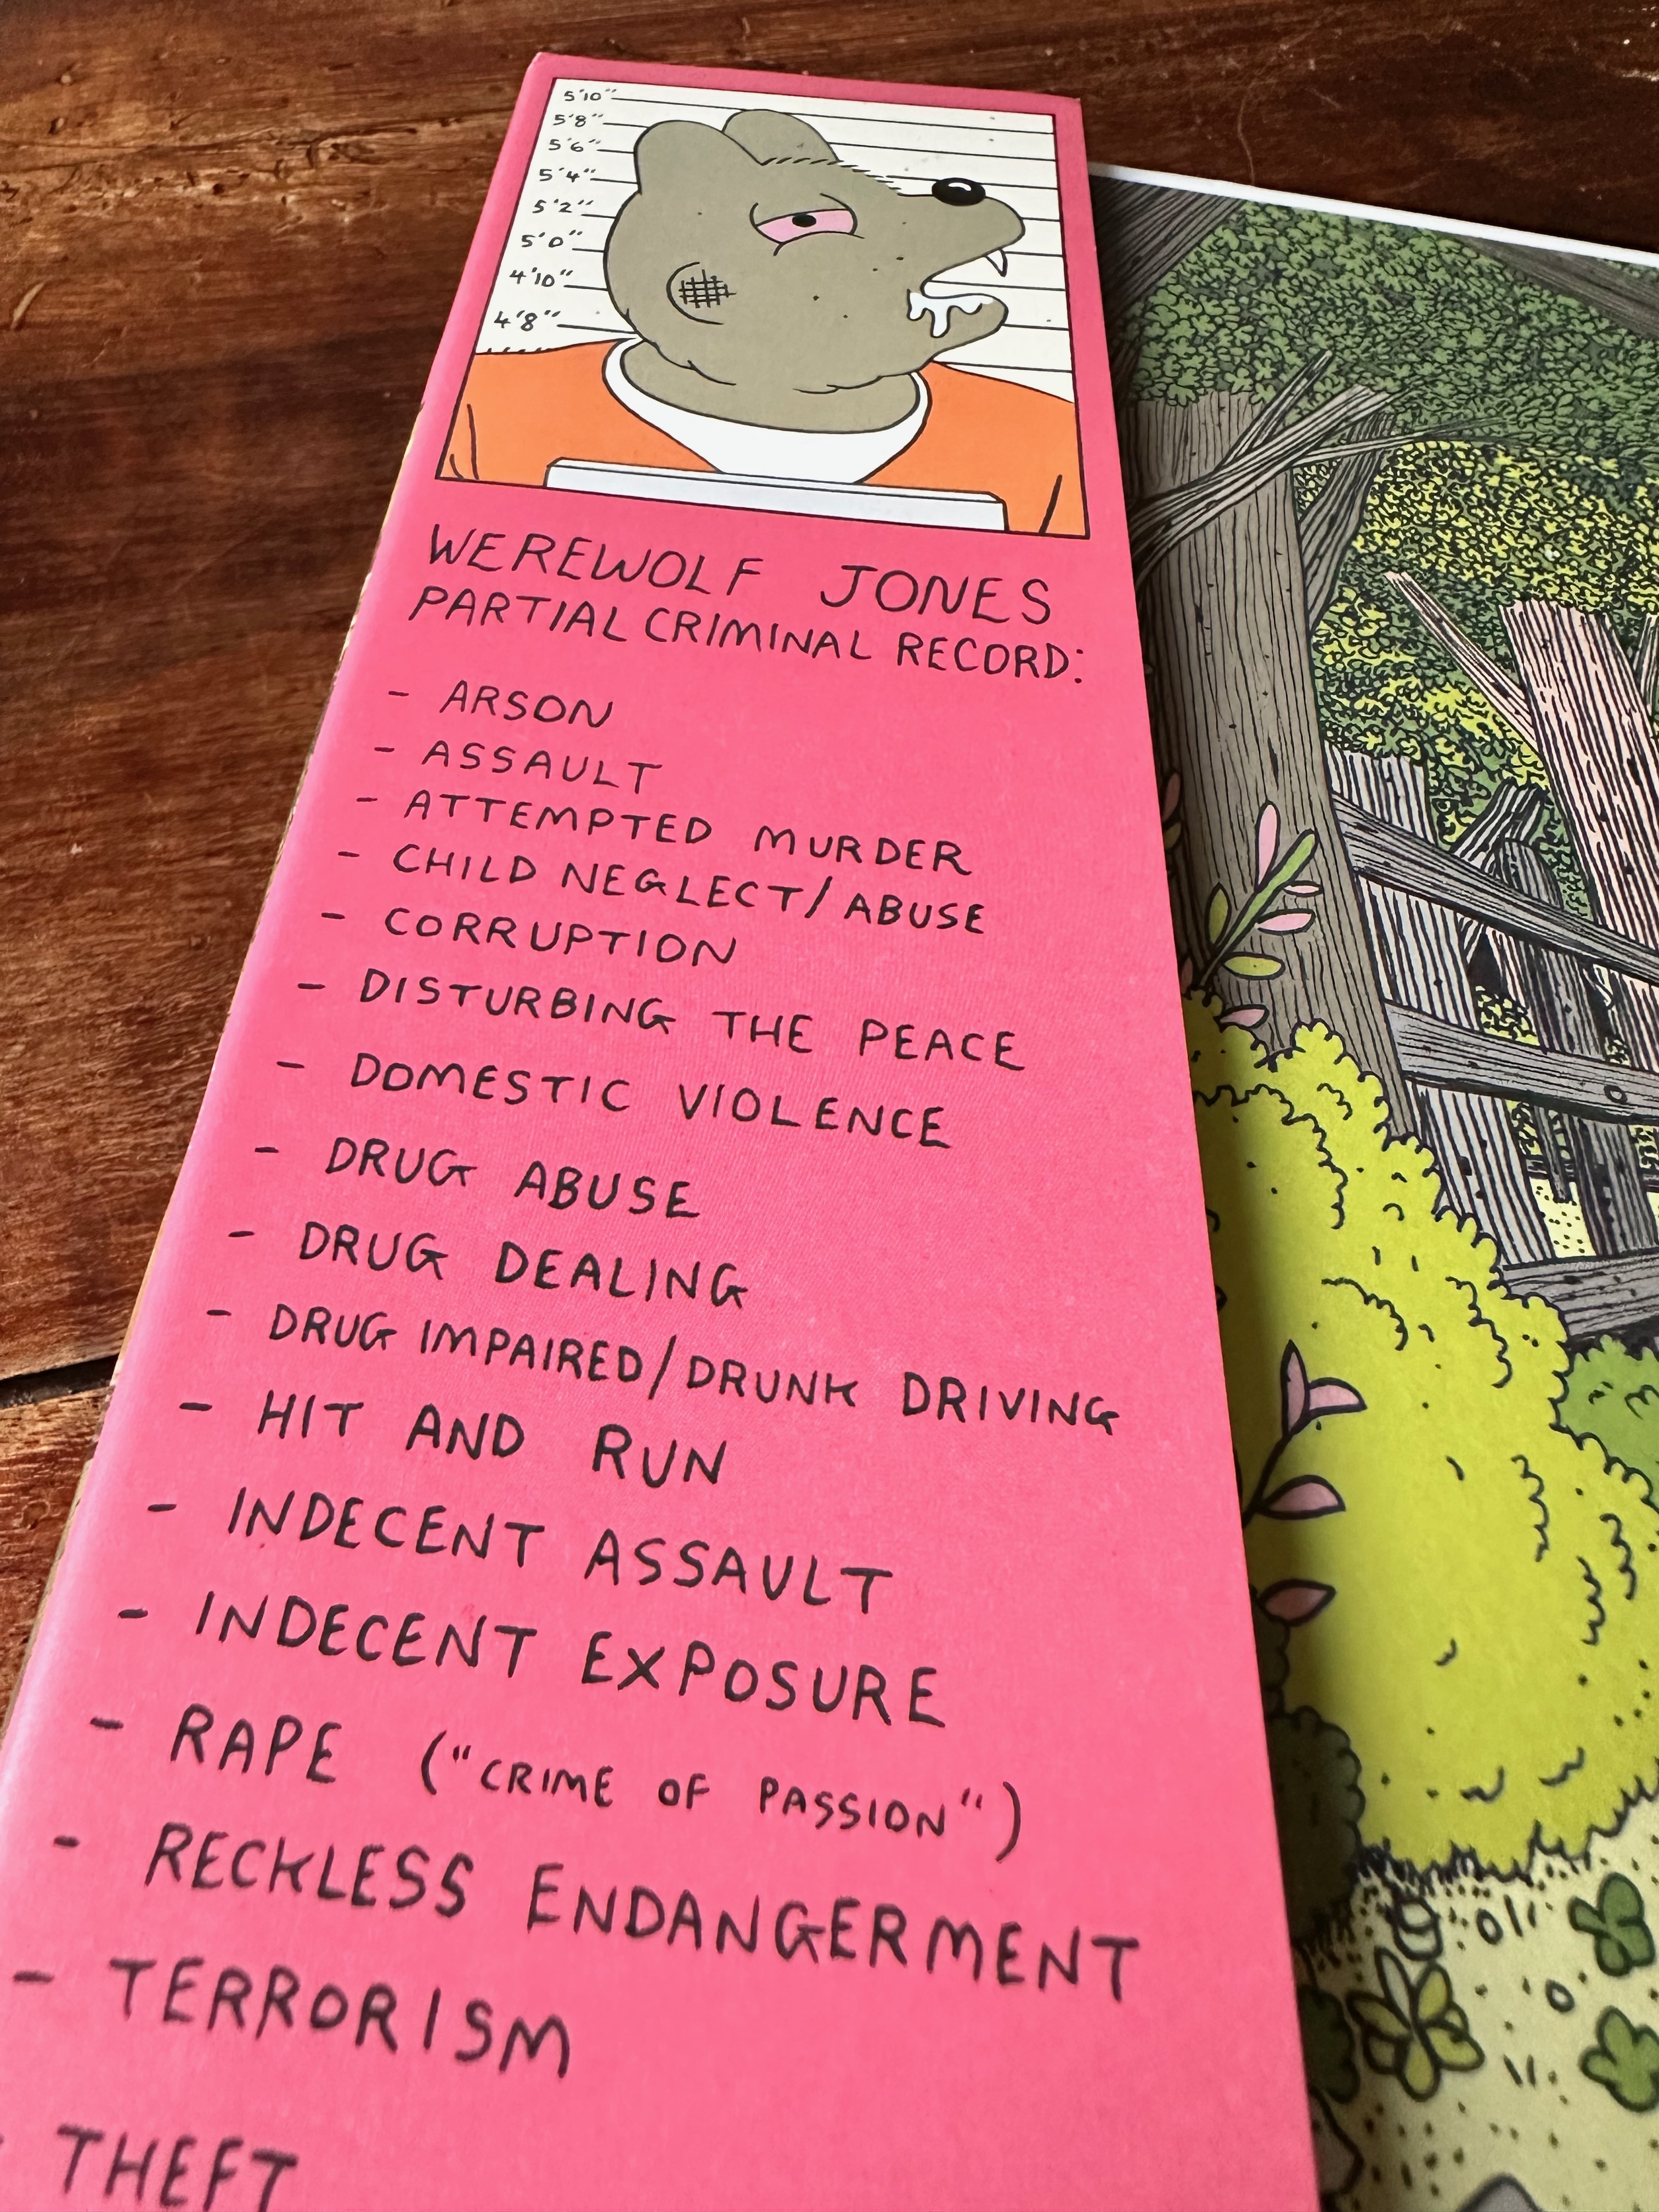 5'10"
5'8"
5'6"
5'4"
5'2"
5'0"
4'10"
4'8"
WEREWOLF JONES
PARTIAL CRIMINAL RECORD:
- ARSON
- ASSAULT
- ATTEMPTED MURDER
- CHILD NEGLECT/ABUSE
- CORRUPTION
- DISTURBING THE PEACE
- DOMESTIC VIOLENCE
- DRUG ABUSE
- DRUG DEALING
- DRUG IMPAIRED/DRUNK DRIVING
- HIT AND RUN
- INDECENT ASSAULT
- INDECENT EXPOSURE
- RAPE ("CRIME OF PASSION")
- RECKLESS ENDANGERMENT
- TERRORISM
- THEFT